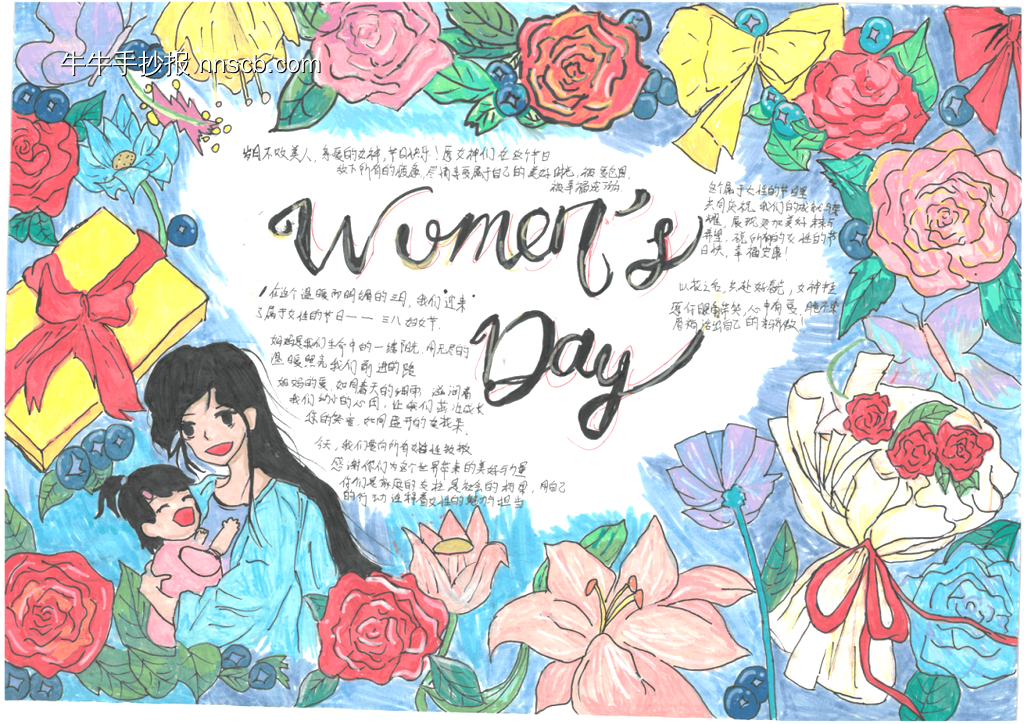 牛牛手抄报 nnscb.com
岁月不败美人,亲爱的女神,节日快乐!愿女神们在这个节日
放下所有的疲惫,尽情享受属于自己的美好时光,被爱包围,
被幸福
这个属于女性的节日里
共同庆祝我们的成就与荣
耀,展望更加美好未来与
希望,祝所有的女性的节
日快,幸福安康!
Women's
Day
在这个温暖而明媚的三月,我们迎来
了属于女性的节日——三八妇女节.
妈妈是我们生命中的一缕阳光,用无尽的
温暖照亮我们前进的路
妈妈的爱,如同春天的细雨,滋润着
我们幼小的心田,让我们茁壮成长
您的笑容,如同盛开的
以花之名,共赴好春光,女神
愿你眼中有笑,心中有爱,
活出自己的
今天,我们要向所有女性致敬
感谢你们为这个世界带来的美好与力量
你们是家庭的支柱,是社会的栋梁,用自己
的行动诠释着女性的魅力与担当